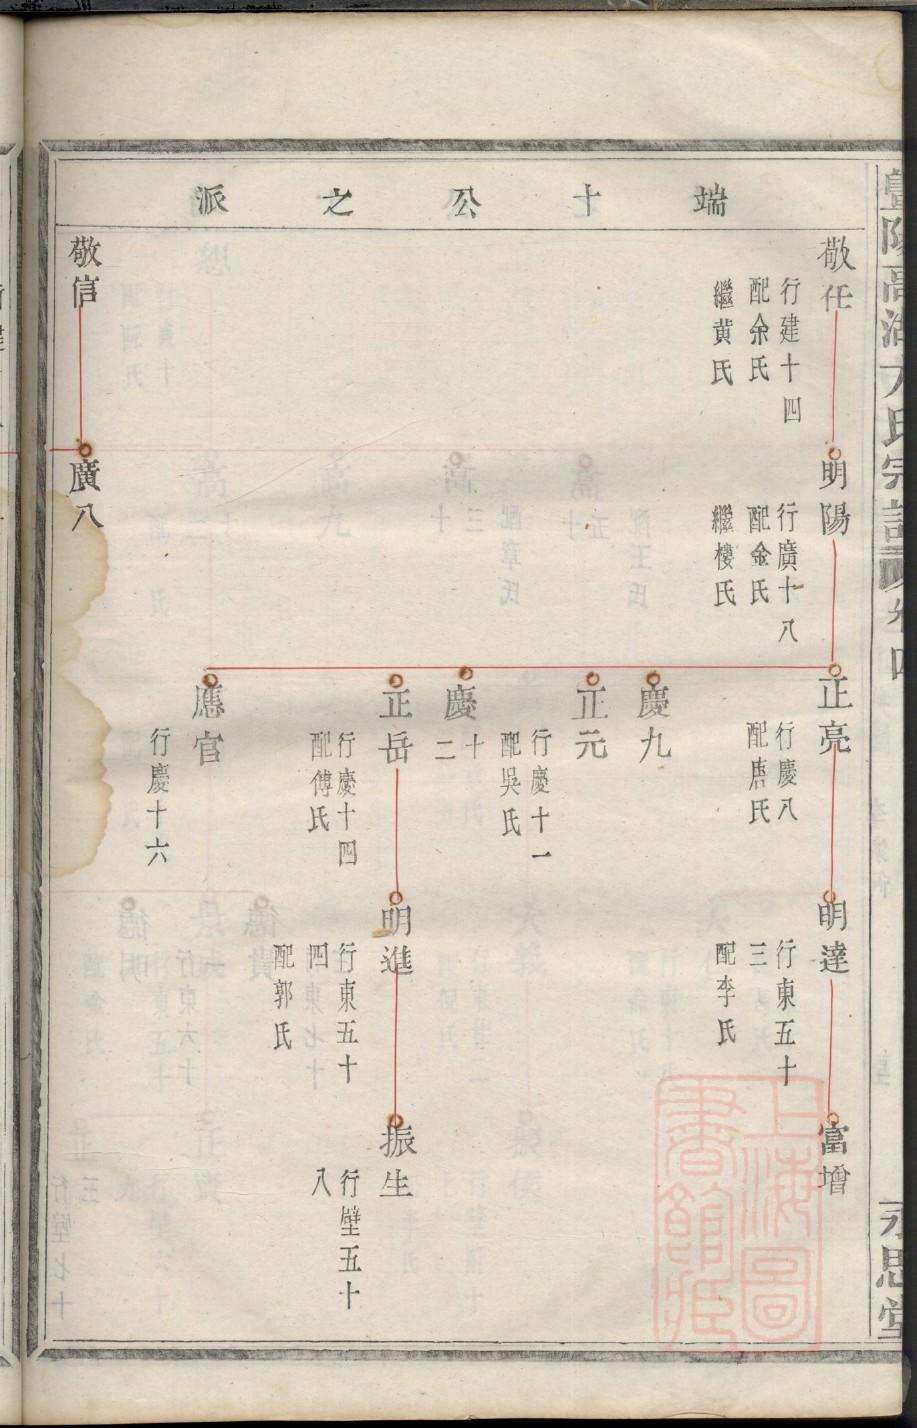 端十公之派
敬任
行建十四
配余氏
繼黄氏
明陽
行廣十八
配金氏
繼樓氏
正亮
行慶八
配唐氏
明達
行東五十
三
配李氏
富增
慶九
正元
行慶十一
配吳氏
慶十
二
正岳
行慶十四
配傅氏
明進
行東五十
四
配郭氏
振生
行壁五十
八
應官
行慶十六
敬信
廣八
永思堂
上海圖
書館藏